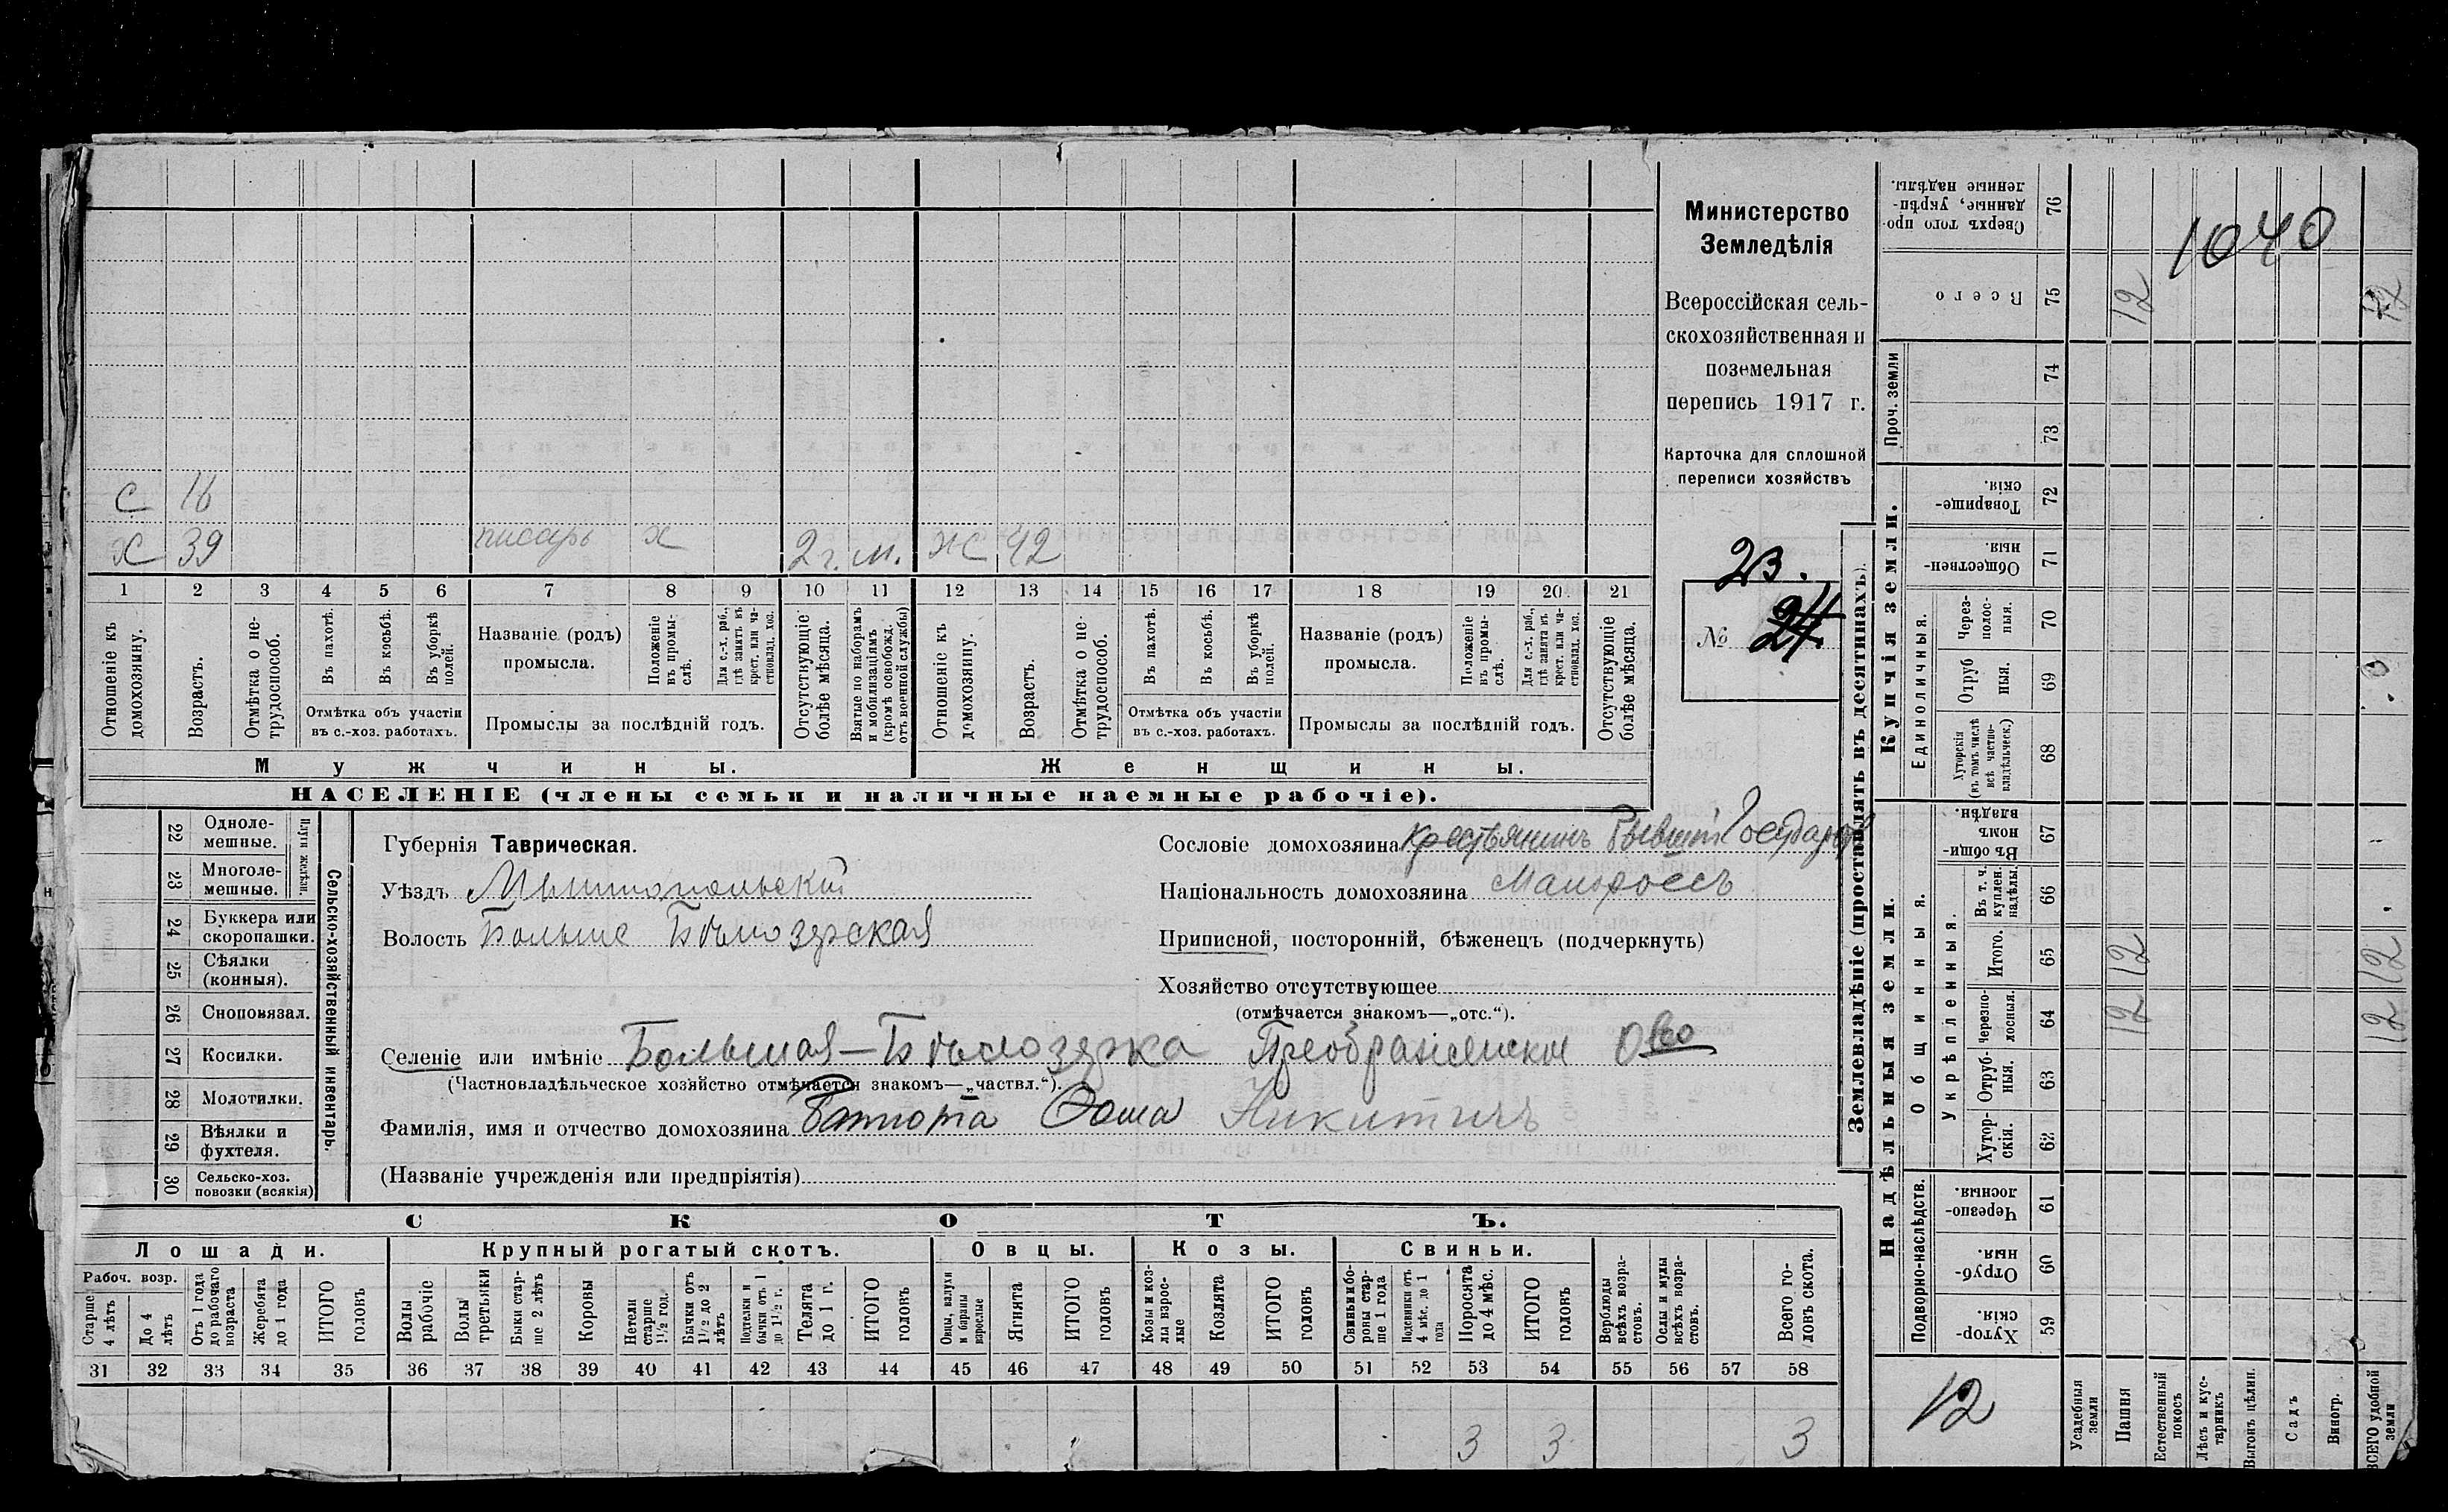 С 16
Х 39 писарь х 2 г. м. Ж 42
1 2 3 4 5 6 7 8 9 10 11 12 13 14 15 16 17 18 19 20 21
Отношеніе къ домохозяину.
Возрастъ.
Отмѣтка о нетрудоспособ.
Въ пахотѣ.
Въ косьбѣ.
Въ уборкѣ полей.
Отмѣтка объ участіи въ с.-хоз. работахъ.
Названіе (родъ) промысла.
Положеніе въ промыслѣ.
Для с.-х. раб., гдѣ занятъ въ крест. или частновлад. хоз.
Промыслы за послѣдній годъ.
Отсутствующіе болѣе мѣсяца.
Взятые по наборамъ и мобилизаціямъ (кромѣ освобожд. отъ военной службы)
Отношеніе къ домохозяину.
Возрастъ.
Отмѣтка о нетрудоспособ.
Въ пахотѣ.
Въ косьбѣ.
Въ уборкѣ полей.
Отмѣтка объ участіи въ с.-хоз. работахъ.
Названіе (родъ) промысла.
Положеніе въ промыслѣ.
Для с.-х. раб., гдѣ занята въ крест. или частновлад. хоз.
Промыслы за послѣдній годъ.
Отсутствующіе болѣе мѣсяца.
Мужчины. Женщины.
НАСЕЛЕНІЕ (члены семьи и наличные наемные рабочіе).
Министерство
Земледѣлія
Всероссійская сель-
скохозяйственная и
поземельная
перепись 1917 г.
Карточка для сплошной
переписи хозяйствъ
23.
№ 24
22 Одноле-
мешные.
23 Многоле-
мешные.
Плуги желѣзн.
24 Буккера или
скоропашки.
25 Сѣялки
(конныя).
26 Сноповязал.
27 Косилки.
28 Молотилки.
29 Вѣялки и
фухтеля.
30 Сельско-хоз.
повозки (всякія)
Сельско-хозяйственный инвентарь.
Губернія Таврическая.
Уѣздъ Мелитопольский
Волость Больше Бѣлозерская
Сословіе домохозяина крестьянинъ бывшій Государ
Національность домохозяина Малороссъ
Приписной, посторонній, бѣженецъ (подчеркнуть)
Хозяйство отсутствующее
(отмѣчается знакомъ—„отс.“).
Селеніе или имѣніе Большая-Бѣлозерка Преображенское О-во
(Частновладѣльческое хозяйство отмѣчается знакомъ—„частвл.“).
Фамилія, имя и отчество домохозяина Ѳома Никитичъ
(Названіе учрежденія или предпріятія)
СКОТЪ.
Лошади. Крупный рогатый скотъ. Овцы. Козы. Свиньи.
Рабоч. возр.
Старше 4 лѣтъ
До 4 лѣтъ
Отъ 1 года до рабочаго возраста
Жеребята до 1 года
ИТОГО головъ
Волы рабочіе
Волы третьяки
Быки старше 2 лѣтъ
Коровы
Нетели старше 1½ год.
Бычки отъ 1½ до 2 лѣтъ
Подтелки и бычки отъ 1 до 1½ г.
Телята до 1 г.
ИТОГО головъ
Овцы, валухи и бараны взрослые
Ягнята
ИТОГО головъ
Козы и козлы взрослые
Козлята
ИТОГО головъ
Свиньи и боровы старше 1 года
Подсвинки отъ 4 мѣс. до 1 года
Поросята до 4 мѣс.
ИТОГО головъ
Верблюды всѣхъ возрастовъ.
Ослы и мулы всѣхъ возрастовъ.
Всего головъ скота.
31 32 33 34 35 36 37 38 39 40 41 42 43 44 45 46 47 48 49 50 51 52 53 54 55 56 57 58
3 3 3
Землевладѣніе (проставлять въ десятинахъ).
Купчія земли.
Надѣльныя земли.
Сверхъ того проданные, укрѣпленные надѣлы. 76
1040
Всего 75 12 12
Проч. земли
74
73
Товарищескія. 72
Общественныя. 71
Единоличныя.
Черезполосныя. 70
Отрубныя. 69
Хуторскія (въ томъ числѣ всѣ частновладѣльческ.) 68
Общинныя.
Въ общинномъ владѣн. 67
Укрѣпленныя.
Въ т. ч. куплен. надѣлы. 66
Итого. 65 12 12
Черезполосныя. 64 12 12
Отрубныя. 63
Хуторскія. 62
Подворно-наслѣдств.
Черезполосныя. 61
Отрубныя. 60
Хуторскія. 59
12
Усадебныя земли
Пашня
Естественный покосъ
Лѣсъ и кустарникъ
Выгонъ цѣлин.
Садъ
Виногр.
ВСЕГО удобной земли